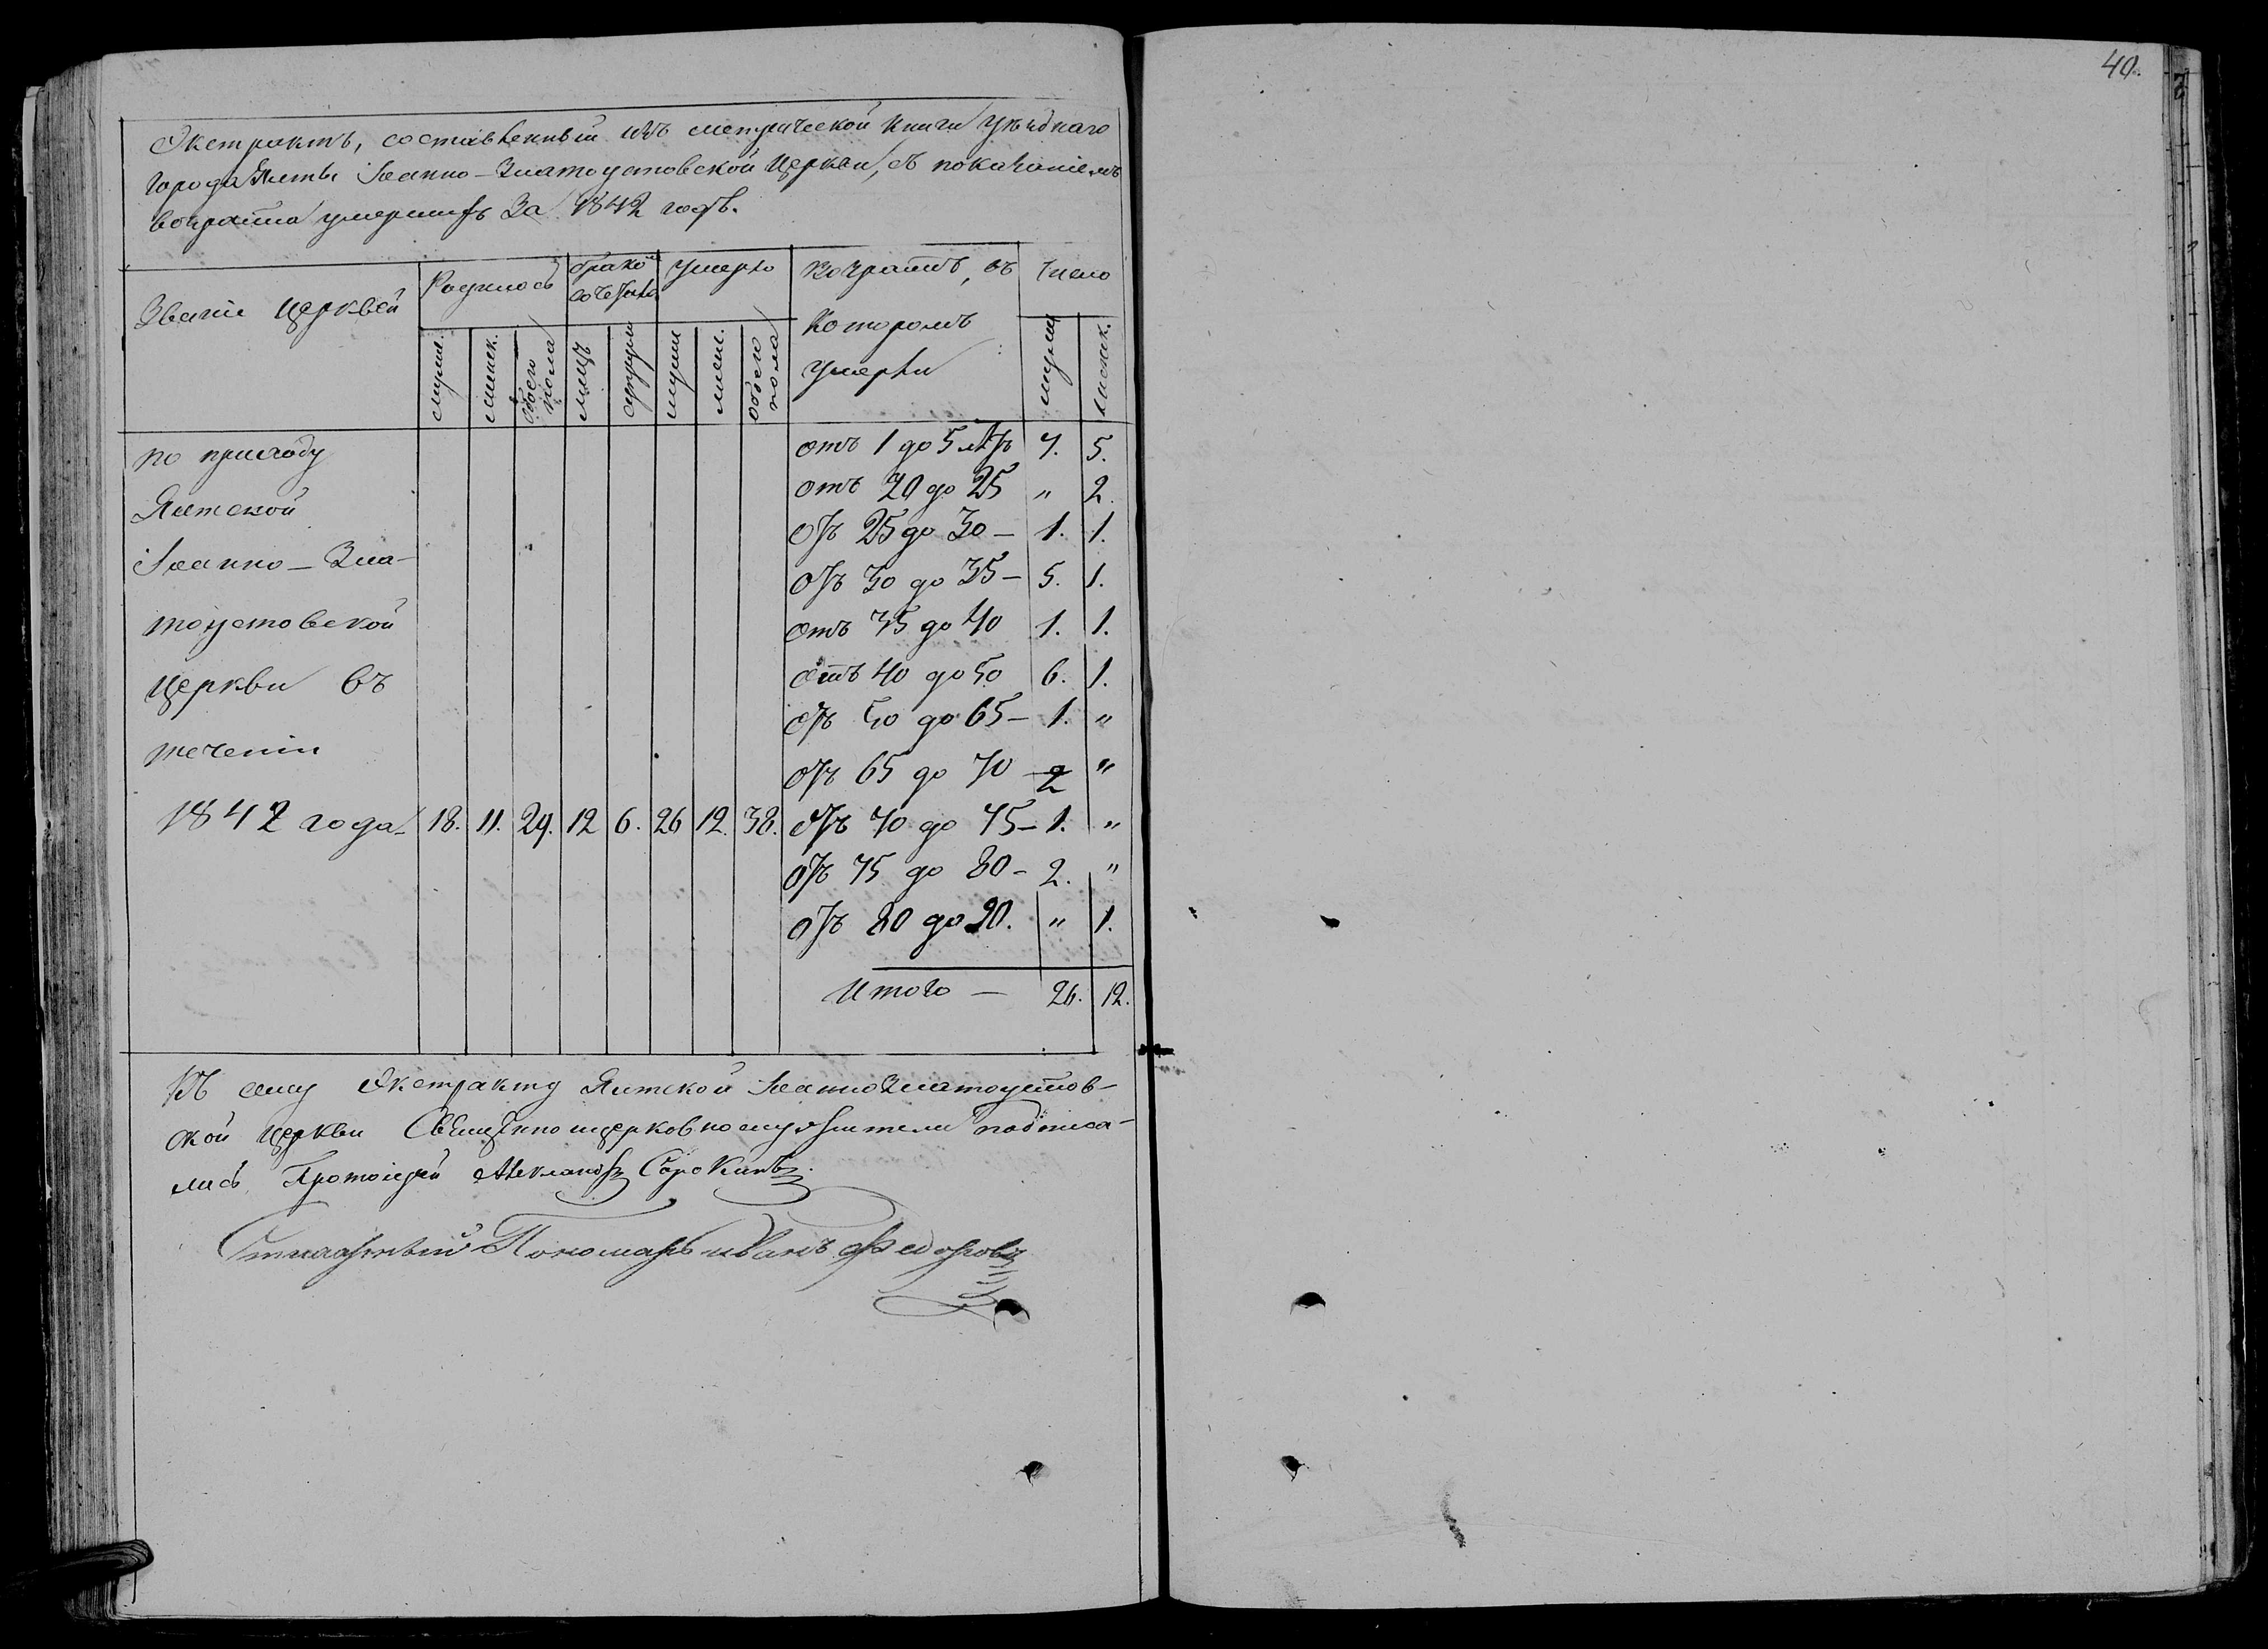 40.
Экстрактъ, составленный изъ метрической книги уѣзднаго
города Ялты Іоанно-Златоустовской Церкви, съ показаніемъ
возраста умершихъ За 1842 годъ.
Званіе Церквей
Родилось
Бракосочетано
Умерло
Возрастъ, въ
Которомъ
Умерли
Число
мужеск.
женск.
обоего пола
лицъ
супруж.
мужеск
женск.
обоего пола
мужеск
женск.
по приходу
Ялтской
Іоанно-Зла-
тоустовской
Церкви въ
теченіи
1842 года 18. 11. 29. 12 6. 26 12. 38.
отъ 1 до 5 лѣтъ 7. 5.
отъ 20 до 25 " 2.
отъ 25 до 30 – 1. 1.
отъ 30 до 35 – 5. 1.
отъ 35 до 40 1. 1.
отъ 40 до 50 6. 1.
отъ 50 до 65 – 1. "
отъ 65 до 70 2 "
отъ 70 до 75 – 1. "
отъ 75 до 80 – 2. "
отъ 80 до 90. " 1.
Итого — 26. 12.
Къ сему Экстракту Ялтской Іоанно Златоустов-
ской Церкви Священноцерковнослужители подписа-
лись Протоіерей Александръ Сорокинъ
Пономарь Иванъ Федоровъ